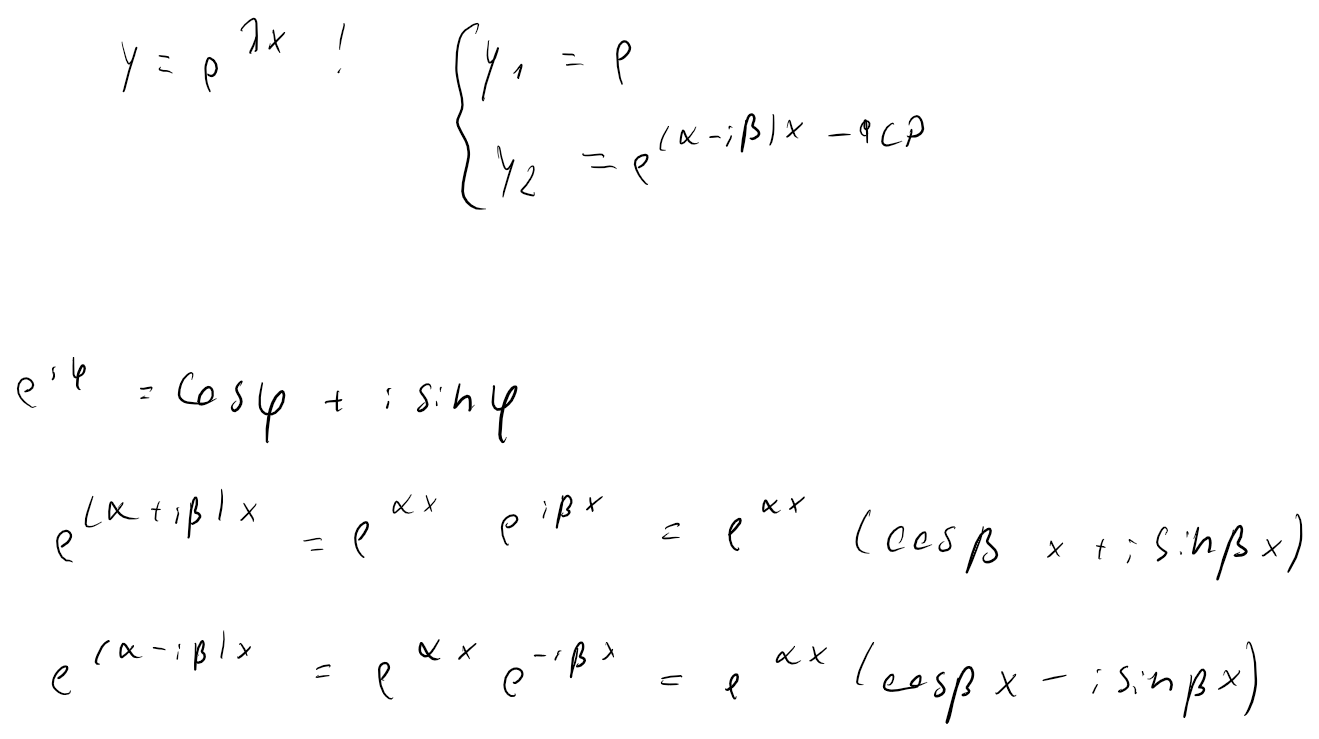 y = e^{λx} ! { y_1 = e
y_2 = e^{(α-iβ)x} - ФСР
e^{iφ} = cos φ + i sin φ
e^{(α+iβ)x} = e^{αx} e^{iβx} = e^{αx} (cos β x + i sin β x)
e^{(α-iβ)x} = e^{αx} e^{-iβx} = e^{αx} (cos β x - i sin β x)